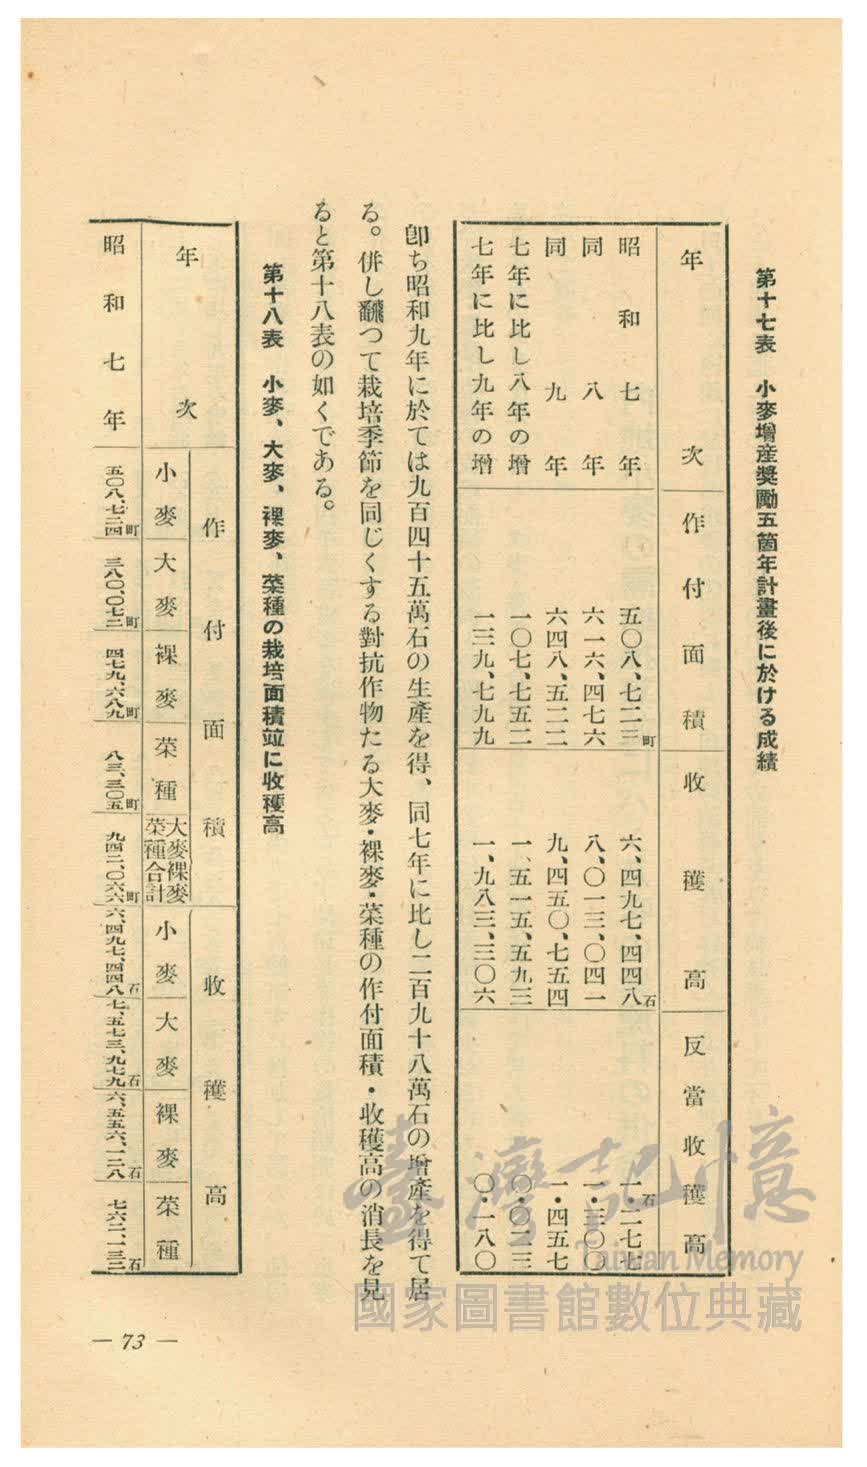 第十七表　小麥增産奬勵五箇年計畫後に於ける成績
年次　作付面積　收穫高　反當收穫高
昭和七年　五〇八、七二三町　六、四九七、四四八石　一・二七七石
同八年　六一六、四七六　八、〇一三、〇四一　一・三〇〇
同九年　六四八、五二二　九、四五〇、七五四　一・四五七
七年に比し八年の增　一〇七、七五二　一、五一五、五九三　〇・〇二三
七年に比し九年の增　一三九、七九九　一、九八三、三〇六　〇・一八〇
卽ち昭和九年に於ては九百四十五萬石の生產を得、同七年に比し二百九十八萬石の增產を得て居
る。併し飜つて栽培季節を同じくする對抗作物たる大麥・裸麥・菜種の作付面積・收穫高の消長を見
ると第十八表の如くである。
第十八表　小麥、大麥、裸麥、菜種の栽培面積竝に收穫高
年次　作付面積　收穫高
小麥　大麥　裸麥　菜種　大麥裸麥菜種合計　小麥　大麥　裸麥　菜種
昭和七年　五〇八、七二四町　三八〇、〇七二町　四七九、六八九町　八三、三〇五町　九四二、〇六六町　六、四九七、四四八石　七、五七三、九七九石　六、五五六、一二八石　七六二、一三三石
— 73 —
臺灣記憶
Taiwan Memory
國家圖書館數位典藏